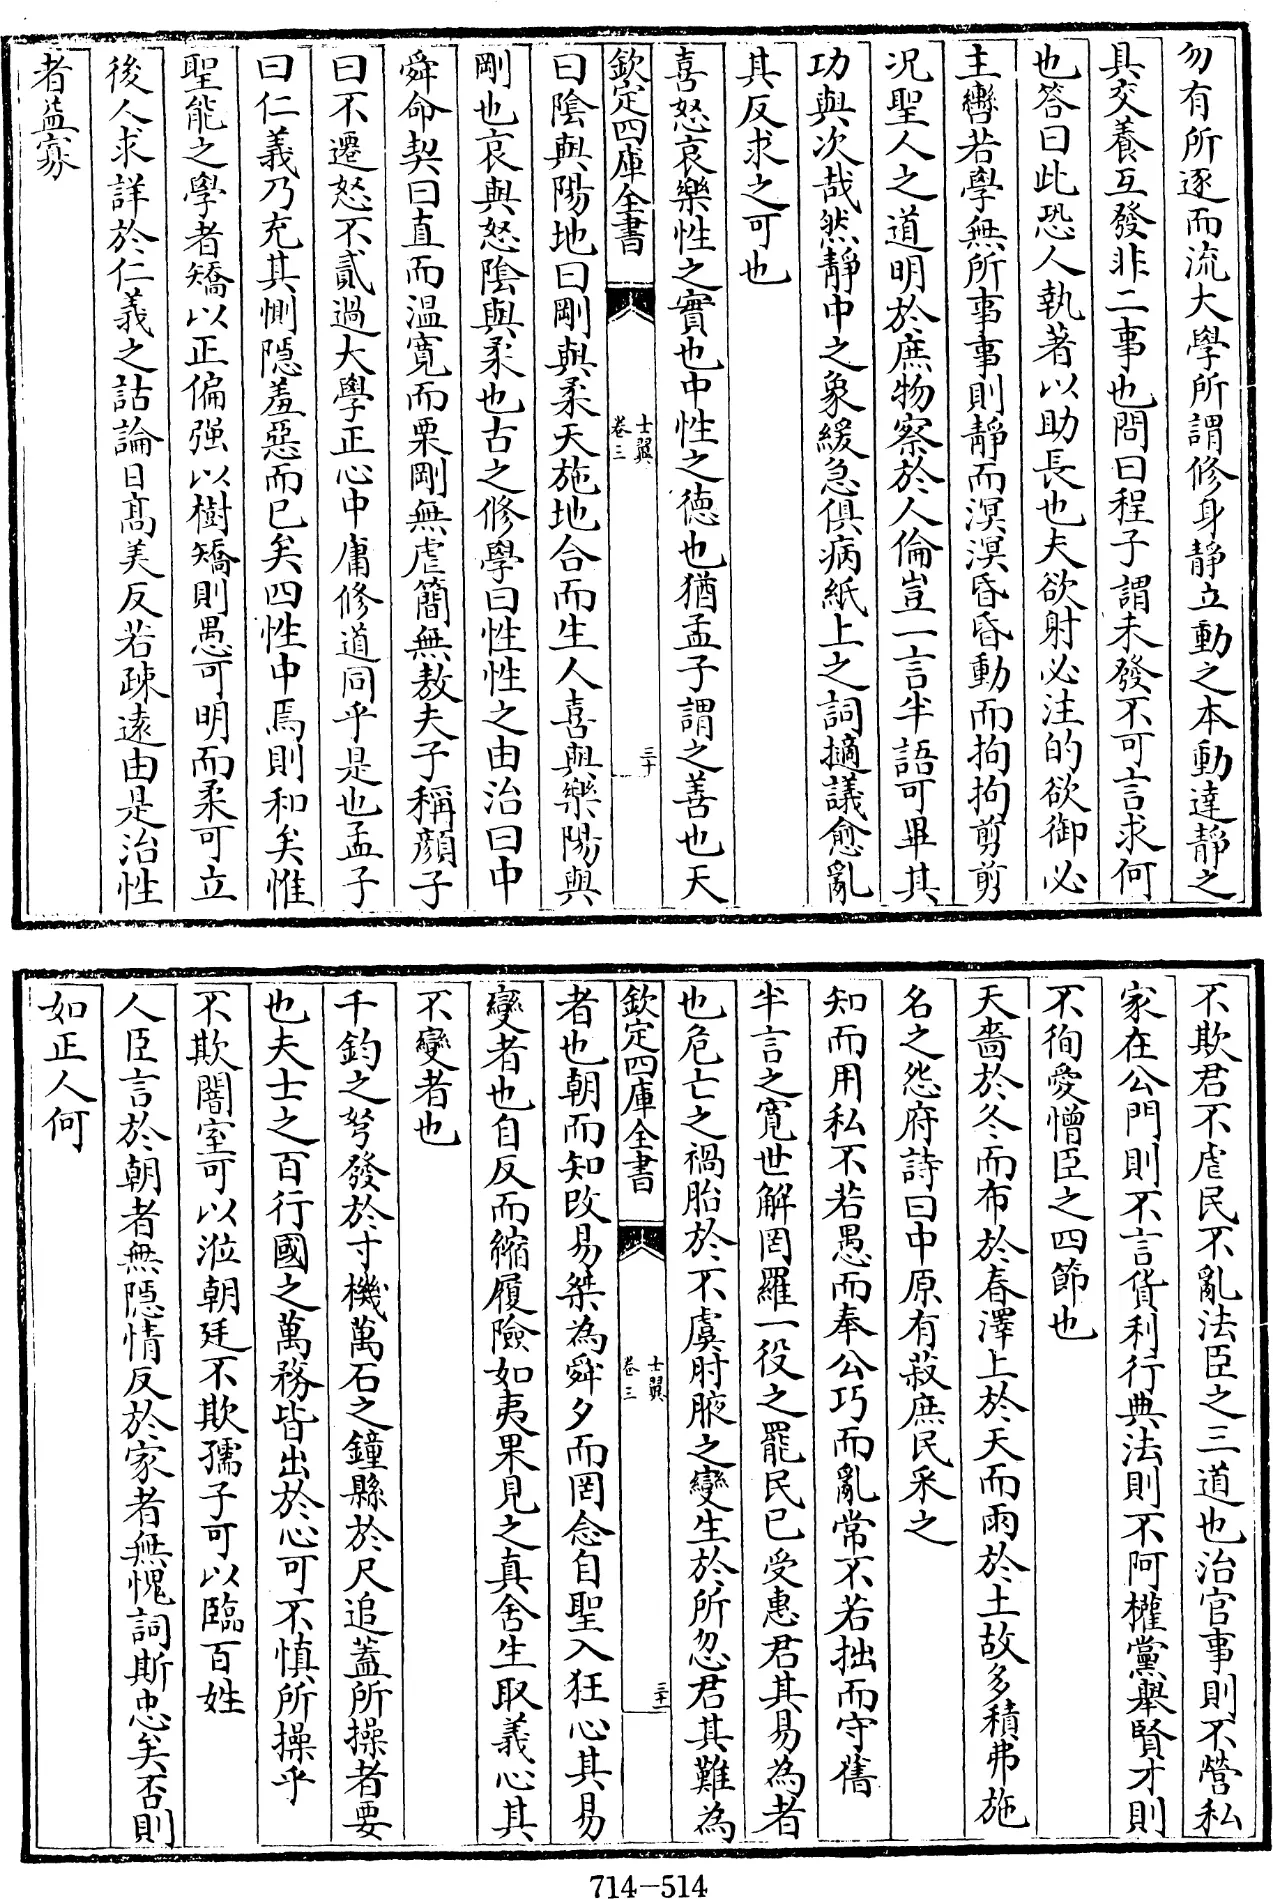 勿有所逐而流大學所謂修身靜立動之本動達靜之
具交養互發非二事也問曰程子謂未發不可言求何
也答曰此恐人執著以助長也夫欲射必注的欲御必
主轡若學無所事事則靜而溟溟昏昏動而拘拘剪剪
況聖人之道明於庶物察於人倫豈一言半語可畢其
功與次哉然靜中之象緩急俱病紙上之詞擿議愈亂
其反求之可也
喜怒哀樂性之實也中性之德也猶孟子謂之善也天
欽定四庫全書
士翼
卷三
三十
曰陰與陽地曰剛與柔天施地合而生人喜與樂陽與
剛也哀與怒陰與柔也古之修學曰性性之由治曰中
舜命契曰直而温寬而栗剛無虐簡無敖夫子稱顔子
曰不遷怒不貳過大學正心中庸修道同乎是也孟子
曰仁義乃充其惻隠羞惡而已矣四性中焉則和矣惟
聖能之學者矯以正偏强以樹矯則愚可明而柔可立
後人求詳於仁義之詁論日髙美反若疎遠由是治性
者益寡
不欺君不虐民不亂法臣之三道也治官事則不營私
家在公門則不言貨利行典法則不阿權黨舉賢才則
不徇愛憎臣之四節也
天嗇於冬而布於春澤上於天而雨於土故多積弗施
名之怨府詩曰中原有菽庶民采之
知而用私不若愚而奉公巧而亂常不若拙而守舊
半言之寛世解罔羅一役之罷民已受惠君其易為者
也危亡之禍胎於不虞肘腋之變生於所忽君其難為
欽定四庫全書
士翼
卷三
三十一
者也朝而知改易桀為舜夕而罔念自聖入狂心其易
變者也自反而縮履險如夷果見之真舍生取義心其
不變者也
千鈞之弩發於寸機萬石之鐘縣於尺追蓋所操者要
也夫士之百行國之萬務皆出於心可不慎所操乎
不欺闇室可以涖朝廷不欺孺子可以臨百姓
人臣言於朝者無隠情反於家者無愧詞斯忠矣否則
如正人何
714-514